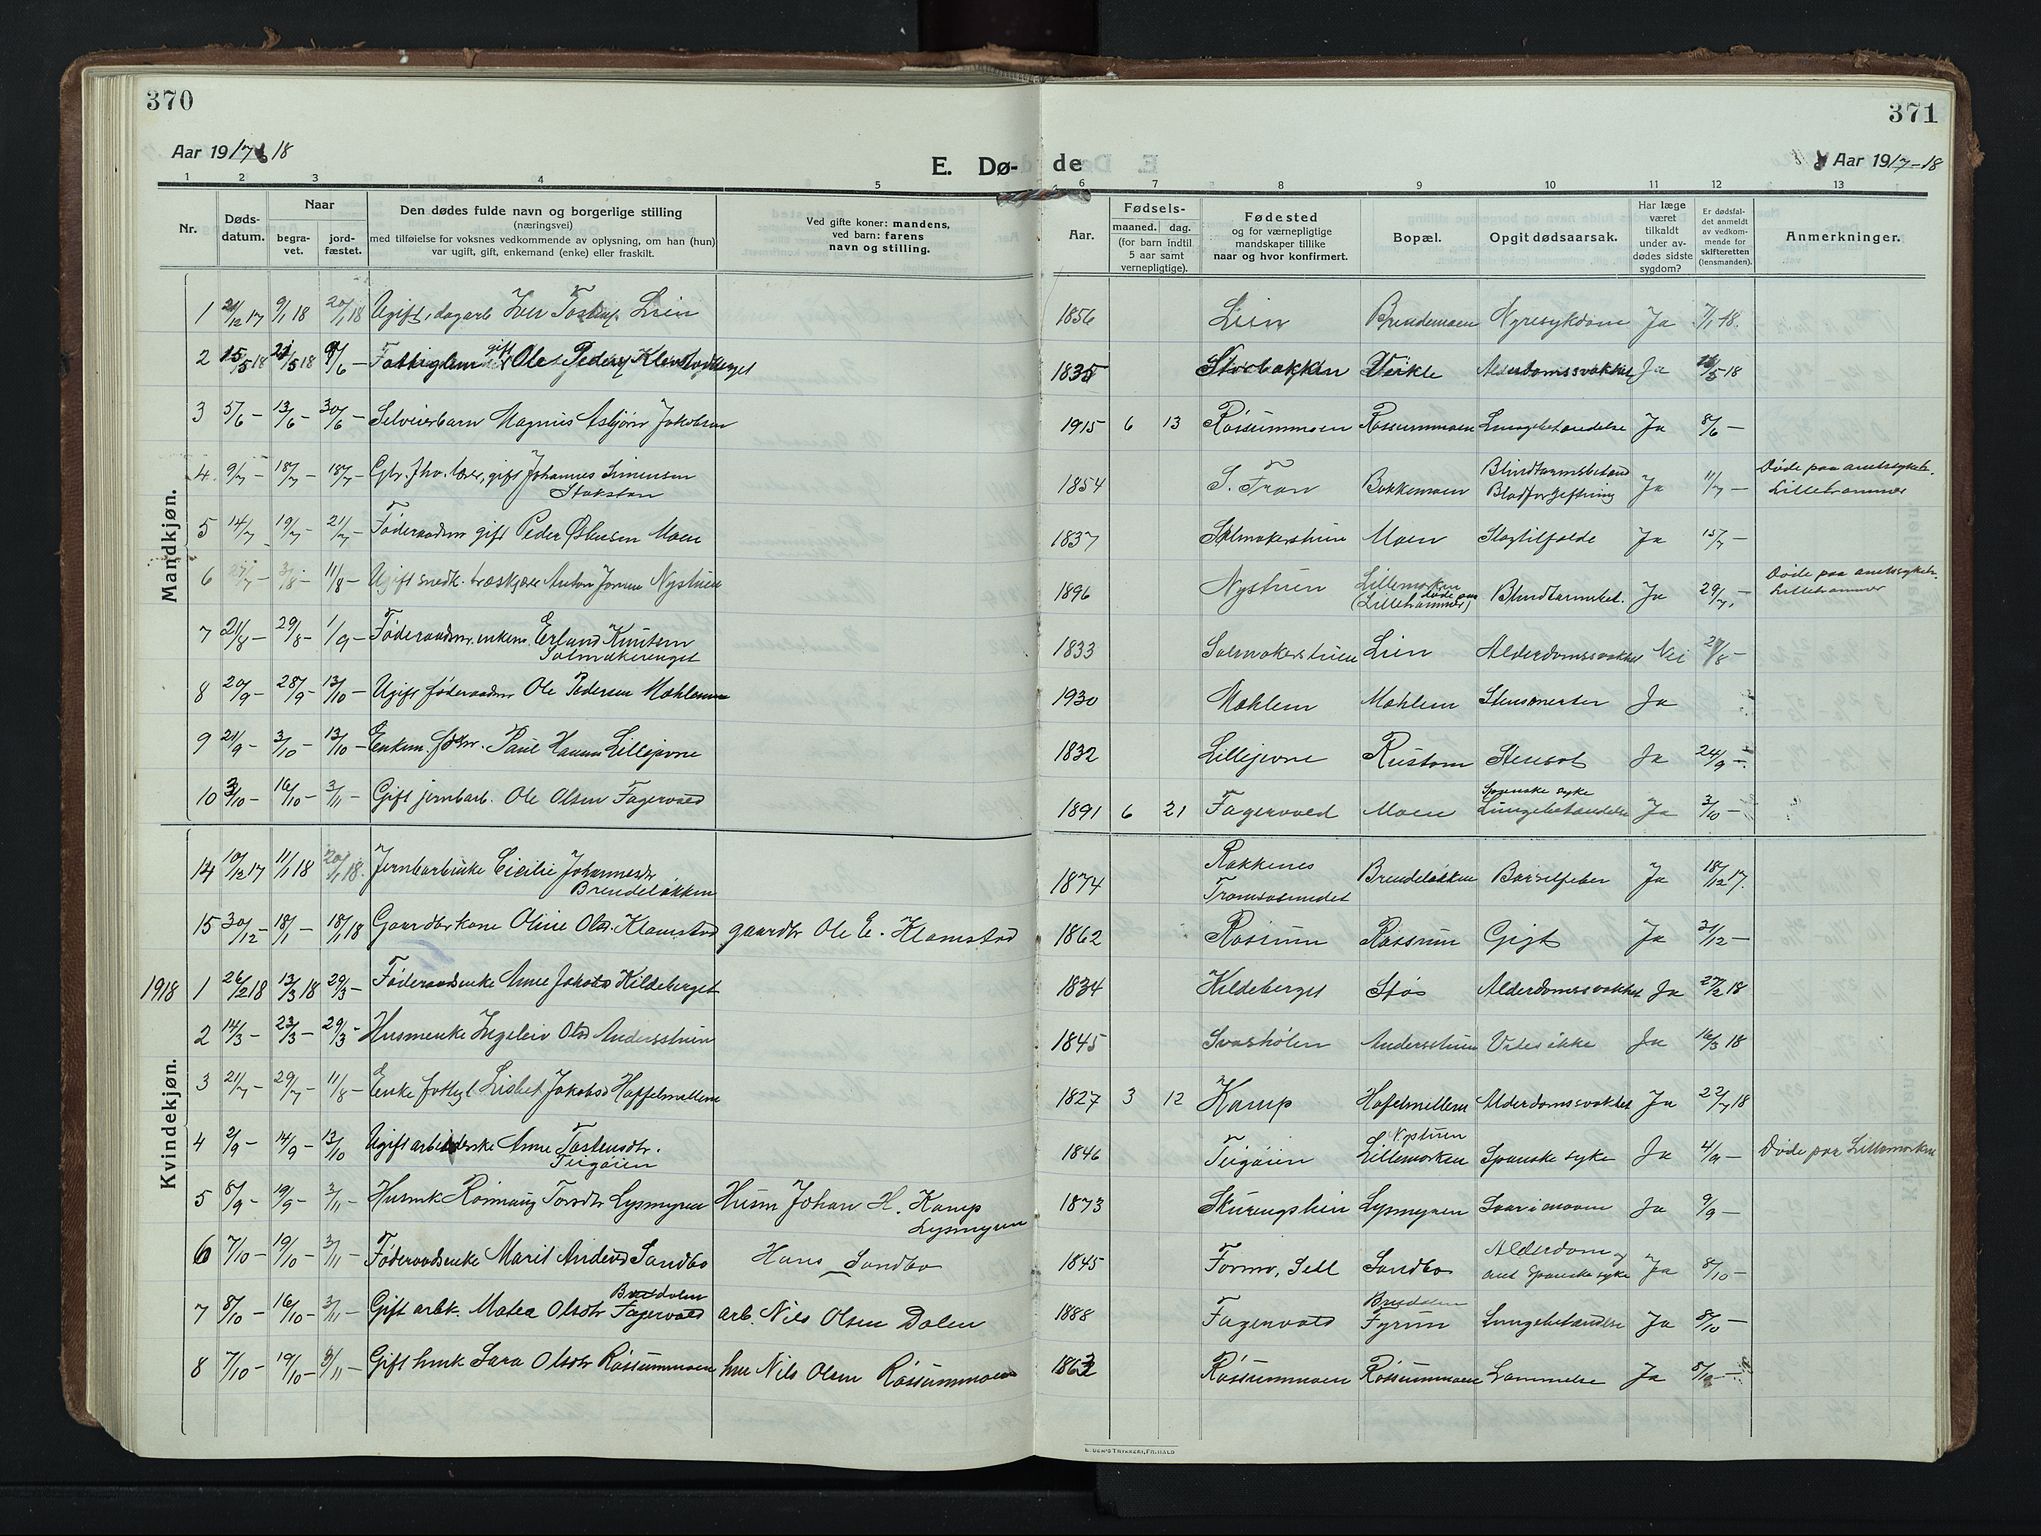 370
371
Aar 1917 18
E. Dø-
de
Aar 1917-18
1 2 3 4 5 6 7 8 9 10 11 12 13
Nr.
Døds-
datum.
Naar
begra-
vet.
jord-
fæstet.
Den dødes fulde navn og borgerlige stilling
(næringsvei)
med tilføielse for voksnes vedkommende av oplysning, om han (hun)
var ugift, gift, enkemand (enke) eller fraskilt.
Ved gifte koner: mandens,
ved barn: farens
navn og stilling.
Aar.
Fødsels-
maaned. dag.
(for barn indtil
5 aar samt
vernepligtige).
Fødested
og for værnepligtige
mandskaper tillike
naar og hvor konfirmert.
Bopæl.
Opgit dødsaarsak.
Har læge
været
tilkaldt
under av-
dødes sidste
sygdom?
Er dødsfal-
det anmeldt
av vedkom-
mende for
skifteretten
(lensmanden).
Anmerkninger.
Mandkjøn.
1 21/12 17 9/1 18 20/1 18 Ugift, dagarb Iver Lien 1856 Lien Brendemoen Nyresykdom Ja 7/1 18.
2 15/5 18 /5 18 /6 gift Ole Peders 1835 Storbakken Veikle Alderdomssvakhet Ja /5 18
3 5/6 – 13/6 – 30/6 – Selveierbarn Magnus Asbjørn Jakobsen 1915 6 13 Røssummoen Røssummoen Lungebetændelse Ja 8/6 –
4 9/7 – 18/7 – 18/7 – gift Johannes Simensen
Stokston 1854 S. Fron Bakkemoen Blindtarmsbetænd
Blodforgiftning Ja 11/7 – Døde paa amtssykeh.
Lillehammer
5 14/7 19/7 – 21/7 – Føderaadsm gift Peder Østensen Moen 1837 Salmakerstuen Moen Slagtilfælde Ja 15/7 –
6 27/7 – 3/8 – 11/8 – Ugift snedk. træskjærer Anton Nystuen 1896 Nystuen Lillemorken
(døde paa
Lillehammer) Blindtarmsbet. Ja 29/7 – Døde paa amtssykeh.
Lillehammer
7 21/8 – 29/8 – 1/9 – Føderaadsm. enkem. Erland Knutsen
Salmakerenget 1833 Salmakerstuen Lien Alderdomssvakhet Nei 2/8 –
8 20/9 – 28/9 – 13/10 – Ugift føderaadsm Ole Pedersen Mæhlum 1930 Mæhlem Mæhlem Stensmerter Ja
9 21/9 – 3/10 – 13/10 – Enkem. Paul Hansen Lillejevne 1832 Lillejevne Rustom Stensot Ja 24/9 –
10 3/10 – 16/10 – 3/11 – Gift jernbarb. Ole Olsen Fagervold 1891 6 21 Fagervold Moen Spanske syke
Lungebetændelse Ja 3/10 –
Kvindekjøn.
14 10/12 17 11/1 18 20/1 18. Jernbarbenke Cicilie Johannesdr
Brendeløkken 1874 Rakkenes
Tromsøsundet Brendeløkken Barselfeber Ja 18/12 17.
15 30/12 – 18/1 – 18/1 18 Gaardbrkone Oline Olsd. Klomstad gaardbr Ole E. Klomstad 1862 Røssum Røssum Gigt Ja 31/12 –
1918 1 26/2 18 13/3 18 29/3 – Føderaadsenke Anne Jakobs Kildeberget 1834 Kildeberget Støs Alderdomssvakhet Ja 27/2 18
2 14/3 – 23/3 – 29/3 – Husmenke Ingeleiv Olsd Andersstuen 1845 Svarholen Andersstuen Vides ikke Ja 16/3 18
3 21/7 – 29/7 – 11/8 – Enke Lisbet Jakobsd Haffelmellem 1827 3 12 Kamp Haffelmellem Alderdomssvakhet Ja 22/7 18
4 2/9 – 14/9 – 13/10 Ugift arbeiderske Anne Tostensdtr.
Teigøien 1846 Teigøien Nystuen
Lillemorken Spanske syke Ja 4/9 – Døde paa Lillemorken
5 8/9 – 19/9 – 3/11 – Husmk Rønnaug Torsdtr Lysmyren Husm Johan H. Kamp
Lysmyren 1873 Skurengslien Lysmyren Saar i maven Ja 9/9 –
6 7/10 – 19/10 – 3/11 – Føderaadsenke Marit Andersd Sandbo Hans Sandbo 1845 Formo, Sell Sandbo Alderdom og
ant Spanske syke Ja 8/10 –
7 8/10 – 16/10 – 3/11 – Gift arbk. Matea Olsdtr Fagervold
Bredalen arb. Nils Olsen Dalen 1888 Fagervold Bredalen
Fyrun Lungebetændelse Ja 8/10 –
8 7/10 – 19/10 – 3/11 – Gift hmk Sara Olsdtr Røssummoen hm Nils Olsen Røssummoen 1863 Røssummoen Røssummoen Lammelse Ja 8/10 –